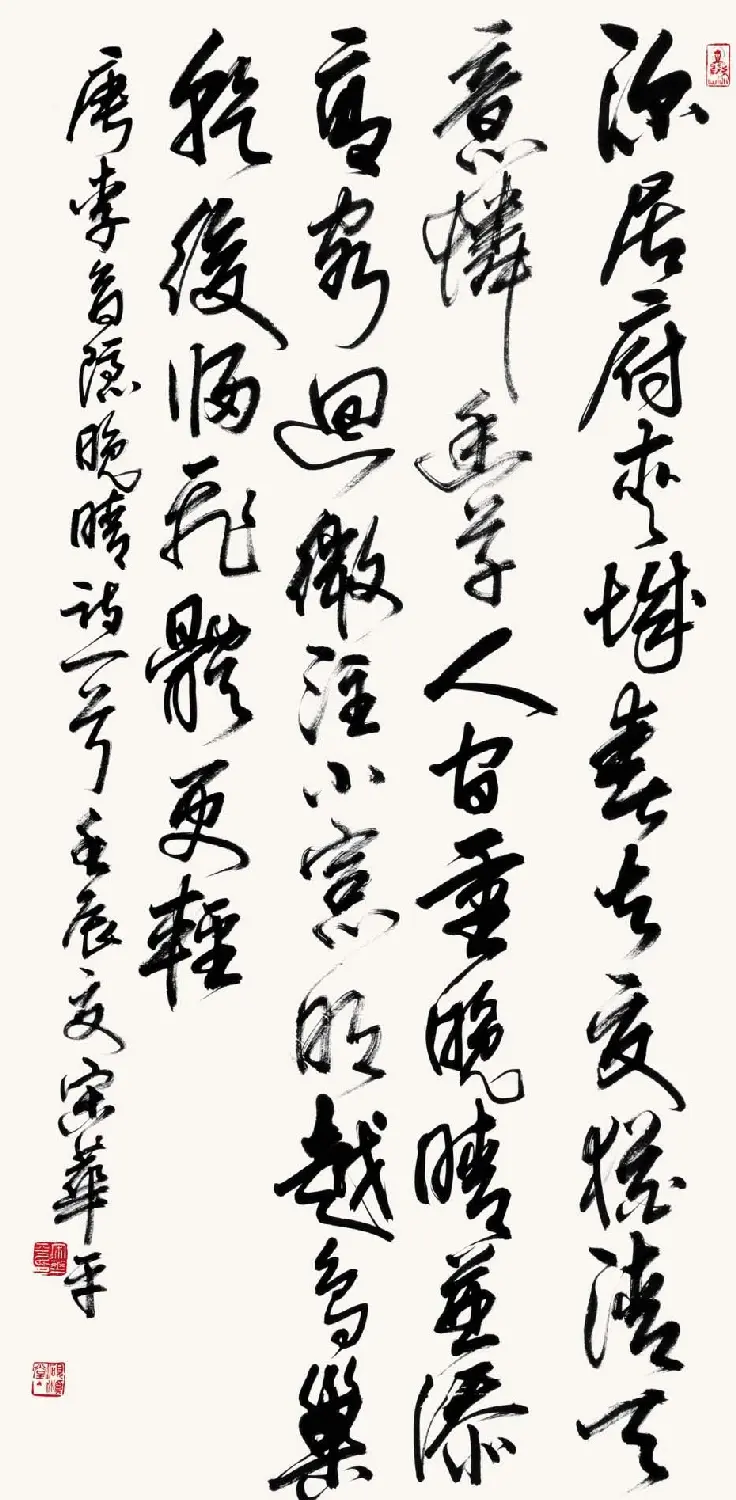 深居府夾城春去夏猶清天
意憐幽草人間重晚晴並添
高閣迥微注小窗明越鳥巢
乾後歸飛體更輕
唐李商隱晚晴詩一首壬辰夏宋華平